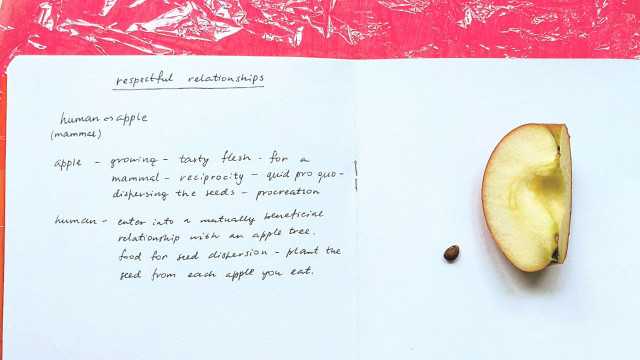 respectful relationships
human ↔ apple
(mammal)
apple - growing - tasty flesh - for a
mammal - reciprocity - quid pro quo -
dispersing the seeds - procreation
human - enter into a mutually beneficial
relationship with an apple tree.
food for seed dispersion - plant the
seed from each apple you eat.